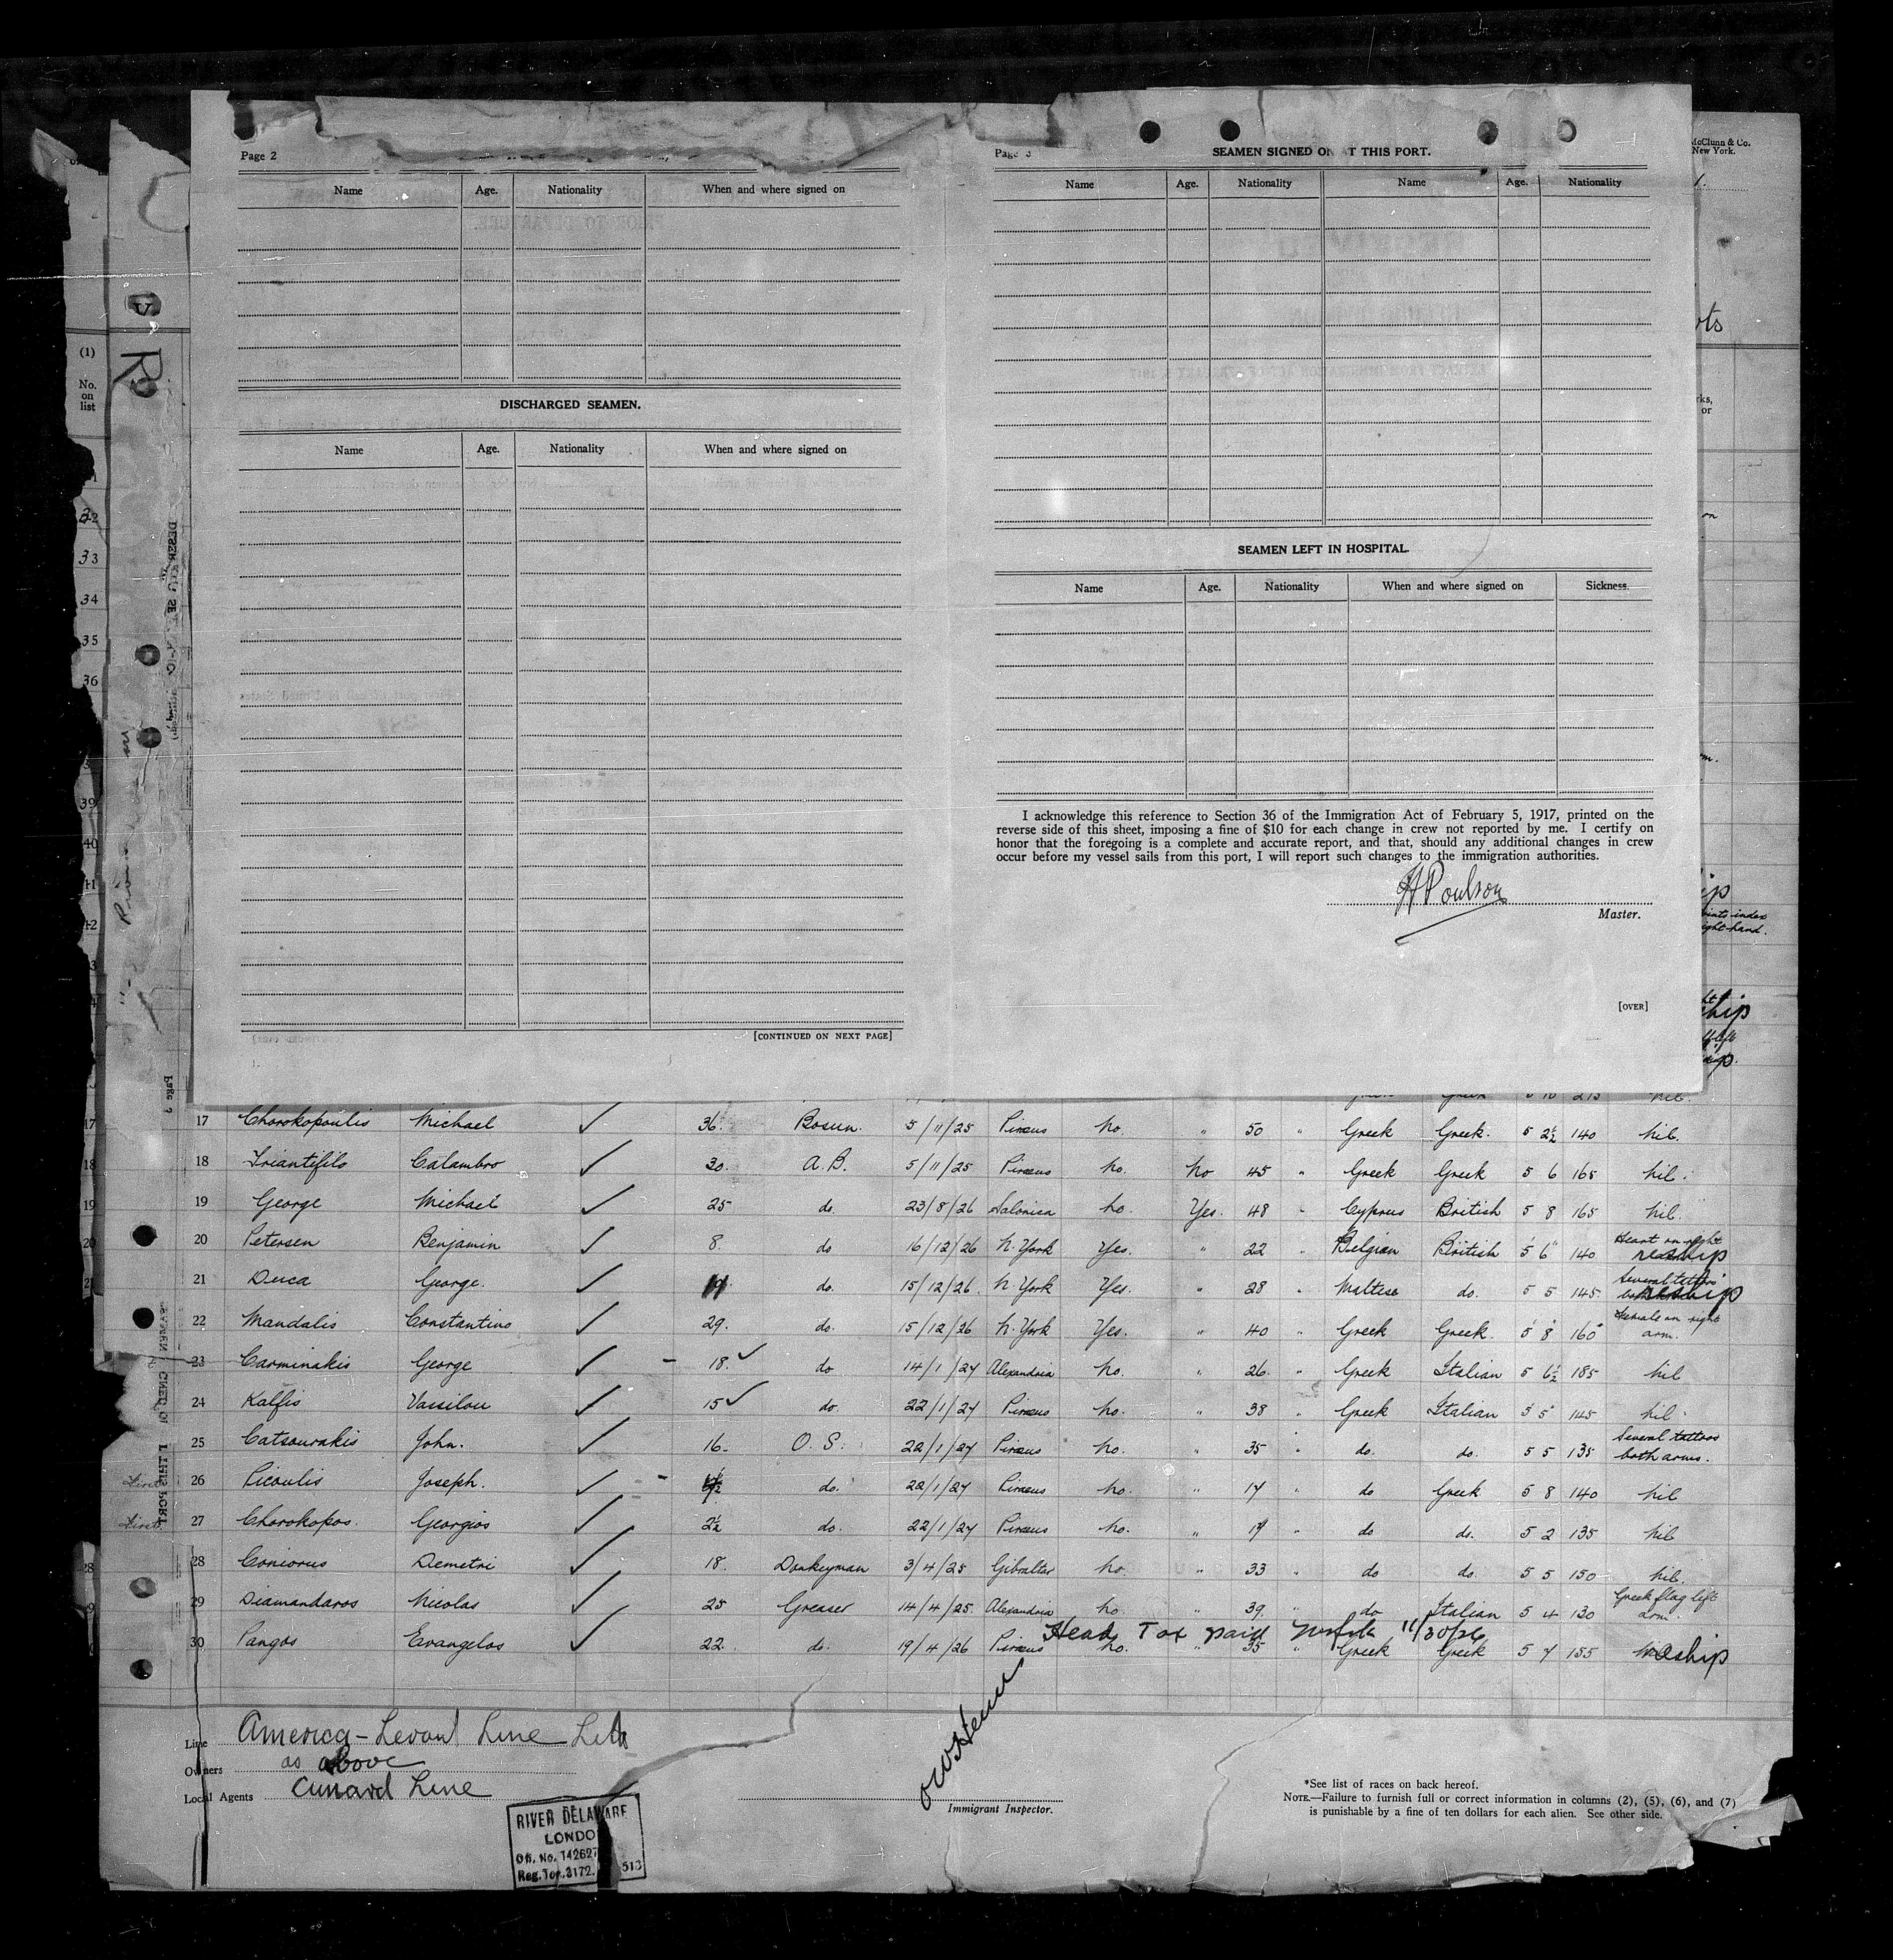 McClunn & Co.
New York.
Page 2
Name Age. Nationality When and where signed on
DISCHARGED SEAMEN.
Name Age. Nationality When and where signed on
[CONTINUED ON NEXT PAGE]
SEAMEN SIGNED ON AT THIS PORT.
Name Age. Nationality Name Age. Nationality
SEAMEN LEFT IN HOSPITAL.
Name Age. Nationality When and where signed on Sickness.
I acknowledge this reference to Section 36 of the Immigration Act of February 5, 1917, printed on the
reverse side of this sheet, imposing a fine of $10 for each change in crew not reported by me. I certify on
honor that the foregoing is a complete and accurate report, and that, should any additional changes in crew
occur before my vessel sails from this port, I will report such changes to the immigration authorities.
H Poulson
Master.
[OVER]
(1)
No.
on
list
33
34
35
36
39
17 Chorokopoulis Michael ✓ 36. Bosun. 5/11/25 Piraeus No. " 50 " Greek Greek. 5 2½ 140 Nil.
18 Triantifilo Calambro ✓ 30. A.B. 5/11/25 Piraeus No. No 45 " Greek Greek 5 6 165 Nil.
19 George Michael ✓ 25 do. 23/8/26 Salonica No. Yes. 48 " Cyprus British 5 8 165 Nil.
20 Petersen Benjamin ✓ 8. do 16/12/26 N. York Yes. " 22 " Belgian British 5 6 140 Heart on right
reship
21 Duca George. ✓ do. 15/12/26. N. York Yes. " 28 " Maltese do. 5 5 145 Several tattoos
reship
22 Mandalis Constantino ✓ 29. do. 15/12/26 N. York Yes. " 40 " Greek Greek. 5 8 160 Female on right
arm.
23 Carminakis George ✓ - 18. ✓ do 14/1/27 Alexandria No. " 26. " Greek Italian 5 6½ 185 Nil
24 Kalfis Vassilou ✓ 15 ✓ do. 22/1/27 Piraeus No. " 38 " Greek Italian 5 5 145 Nil.
25 Catsourakis John. ✓ 16. O. S. 22/1/27 Piraeus No. " 35 " do. do. 5 5 135 Several tattoos
both arms.
26 Picoulis Joseph. ✓ do. 22/1/27 Piraeus No. " 17 " do Greek 5 8 140 Nil
27 Chorokopos. Georgios ✓ 2½ do. 22/1/27 Piraeus No. " 19 " do do. 5 2 135 Nil
28 Coniorus Demetri ✓ 18. Donkeyman 3/4/25 Gibraltar No. " 33 " do do. 5 5 150 Nil.
29 Diamandaros Nicolas ✓ 25 Greaser 14/4/25. Alexandria No. " 39. " do Italian 5 4 130 Greek flag left
arm.
Head Tax paid Norfolk 11/30/26
30 Pangos Evangelos ✓ 22. do. 19/4/26 Piraeus No. " 35 " Greek Greek 5 7 155 reship
Line America-Levant Line Ltd
Owners as above
Local Agents Cunard Line
RIVER DELAWARE
LONDO
Off. No. 14262
Reg. Ton. 3172. 513
Immigrant Inspector.
*See list of races on back hereof.
NOTE.—Failure to furnish full or correct information in columns (2), (5), (6), and (7)
is punishable by a fine of ten dollars for each alien. See other side.